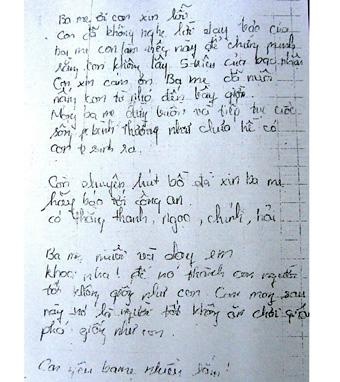 Ba mẹ ơi con xin lỗi
Con đã không nghe lời dạy bảo của
ba mẹ con làm thế này để chứng minh
rằng con không lấy 5 triệu của bạc nhà
Con xin cảm ơn Ba mẹ đã nuôi
nấng con từ nhỏ đến bây giờ.
Mong ba mẹ đừng buồn và tiếp tục cuộc
sống bình thường như chưa hề có
con sinh ra.
Còn chuyện hút bồ đà xin ba mẹ
hãy báo với công an.
có thằng thanh, ngọc, chính, hải
Ba mẹ nuôi và dạy em
khoa nha! để nó thành con người
tốt không giống như con. Con mong sau
này nó là người tốt không ăn chơi quậy
phá giống như con.
Con yêu ba mẹ nhiều lắm!